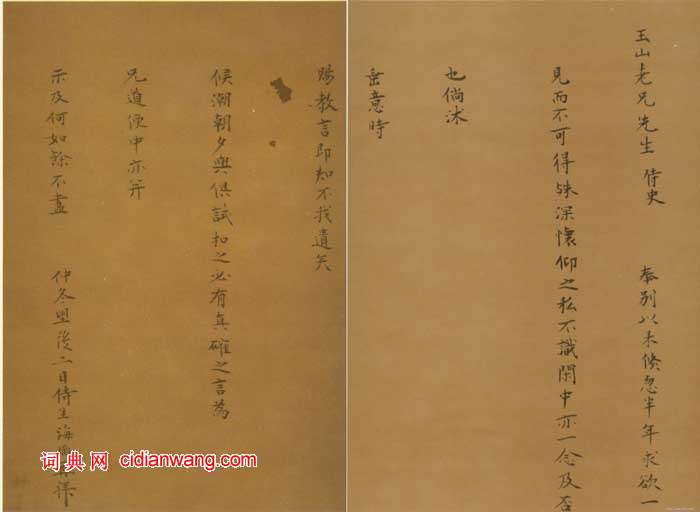 玉山老兄先生 侍史 奉別以来倏忽半年求欲一
見而不可得殊深懷仰之私不識閑中亦一念及否
也倘沐
垂意時
賜教言即知不我遺矣
候潮朝夕與俱試扣之必有真確之言為
兄道便中亦并
示及何如餘不盡
仲冬望後二日侍生海
词典网 cidianwang.com